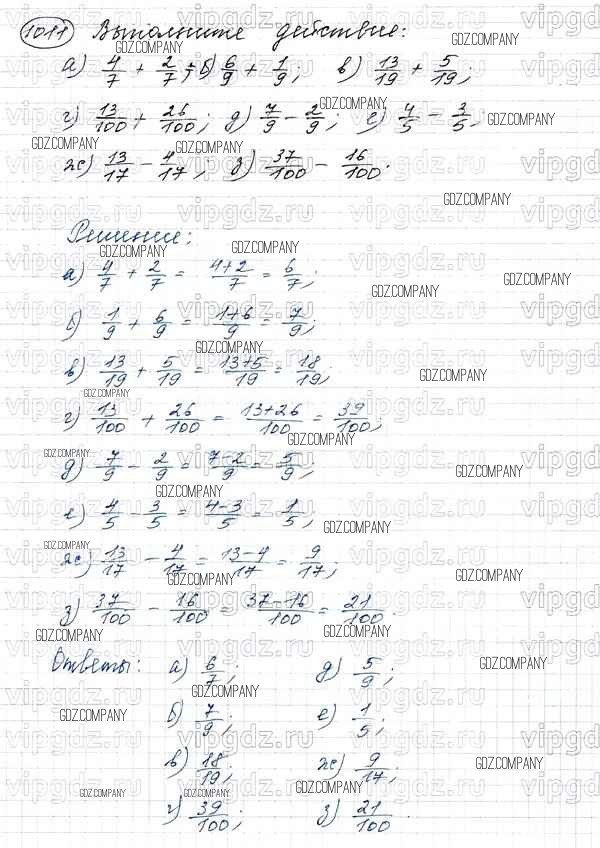 1011 Выполните действие:
а) 4/7 + 2/7; б) 6/9 + 1/9; в) 13/19 + 5/19;
г) 13/100 + 26/100; д) 7/9 - 2/9; е) 4/5 - 3/5;
ж) 13/17 - 4/17; з) 37/100 - 16/100.
Решение:
а) 4/7 + 2/7 = 4+2/7 = 6/7;
б) 1/9 + 6/9 = 1+6/9 = 7/9;
в) 13/19 + 5/19 = 13+5/19 = 18/19;
г) 13/100 + 26/100 = 13+26/100 = 39/100;
д) 7/9 - 2/9 = 7-2/9 = 5/9;
е) 4/5 - 3/5 = 4-3/5 = 1/5;
ж) 13/17 - 4/17 = 13-4/17 = 9/17;
з) 37/100 - 16/100 = 37-16/100 = 21/100.
Ответы: а) 6/7; д) 5/9;
б) 7/9; е) 1/5;
в) 18/19; ж) 9/17;
г) 39/100; з) 21/100
vipgdz.ru
GDZ.COMPANY